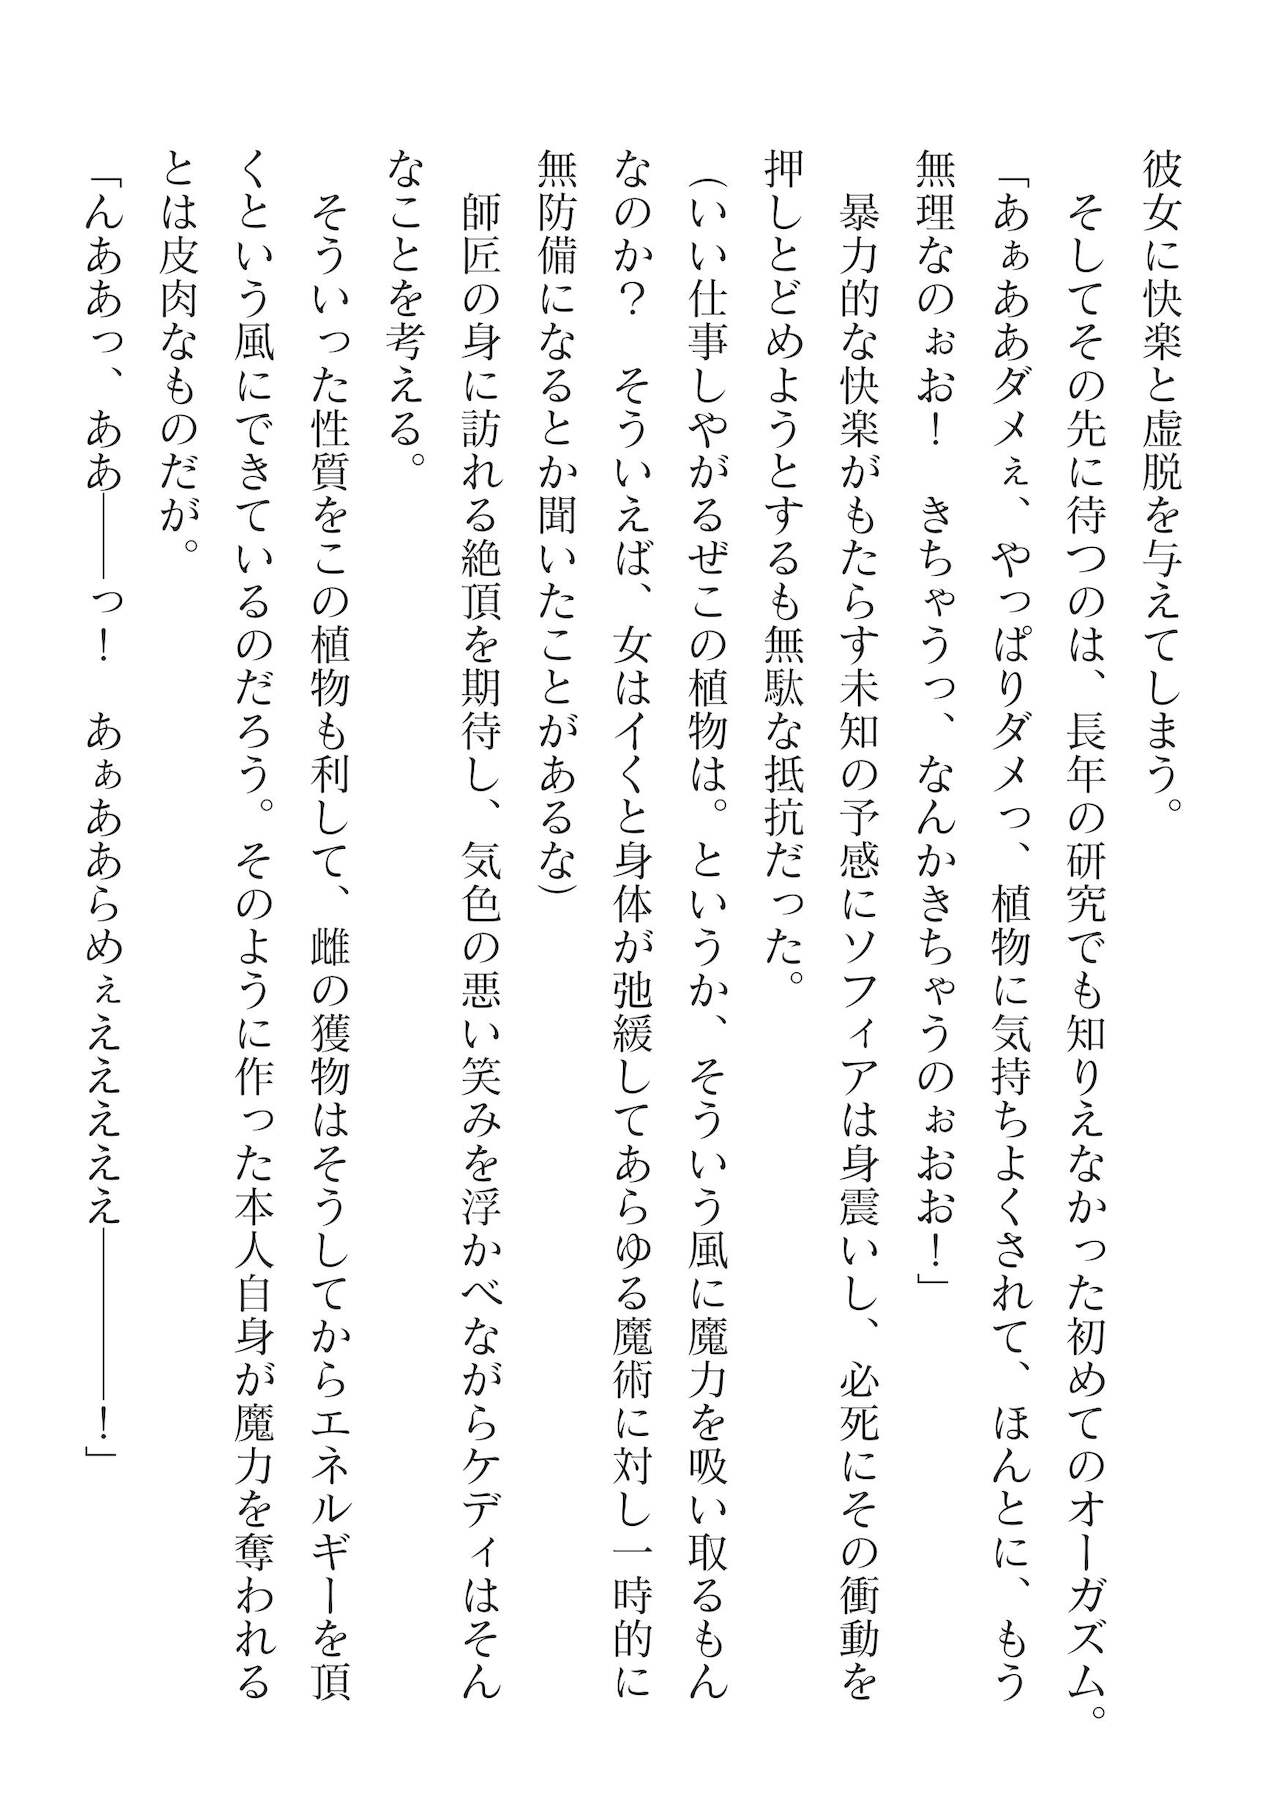 彼女に快楽と虚脱を与えてしまう。
　そしてその先に待つのは、長年の研究でも知りえなかった初めてのオーガズム。
「あぁああダメぇ、やっぱりダメっ、植物に気持ちよくされて、ほんとに、もう
無理なのぉお！　きちゃうっ、なんかきちゃうのぉおお！」
　暴力的な快楽がもたらす未知の予感にソフィアは身震いし、必死にその衝動を
押しとどめようとするも無駄な抵抗だった。
（いい仕事しやがるぜこの植物は。というか、そういう風に魔力を吸い取るもん
なのか？　そういえば、女はイくと身体が弛緩してあらゆる魔術に対し一時的に
無防備になるとか聞いたことがあるな）
　師匠の身に訪れる絶頂を期待し、気色の悪い笑みを浮かべながらケディはそん
なことを考える。
　そういった性質をこの植物も利して、雌の獲物はそうしてからエネルギーを頂
くという風にできているのだろう。そのように作った本人自身が魔力を奪われる
とは皮肉なものだが。
「んああっ、ああ――っ！　あぁああらめぇえええええ――――！」